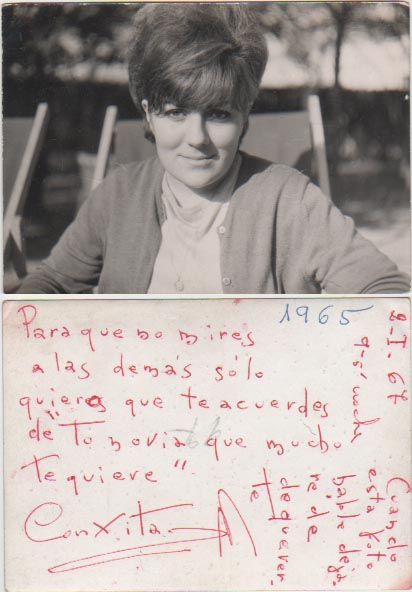 1965
Para que no mires
a las demás sólo
quieres que te acuerdes
de "Tu novia que mucho
te quiere"
Conxita
Cuando
esta foto
hable deja-
ré de
de querer-
te